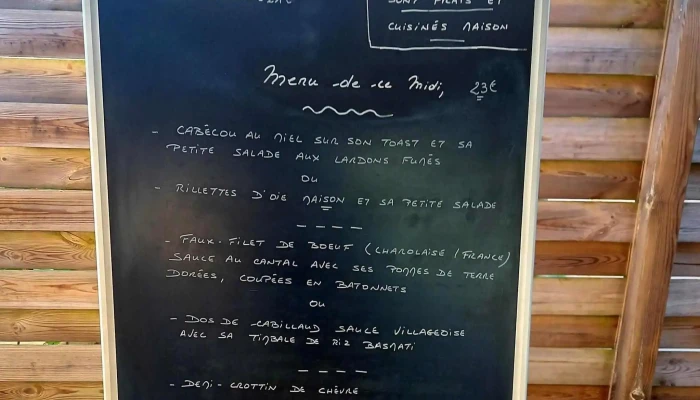 SONT FRAIS ET
CUISINÉS MAISON
Menu de ce Midi, 23€
- CABÉCOU AU MIEL SUR SON TOAST ET SA
PETITE SALADE AUX LARDONS FUMÉS
OU
- RILLETTES D'OIE MAISON ET SA PETITE SALADE
- FAUX-FILET DE BOEUF (CHAROLAISE / FRANCE)
SAUCE AU CANTAL AVEC SES POMMES DE TERRE
DORÉES, COUPÉES EN BATONNETS
OU
- DOS DE CABILLAUD SAUCE VILLAGEOISE
AVEC SA TIMBALE DE RIZ BASMATI
- DEMI-CROTTIN DE CHÈVRE